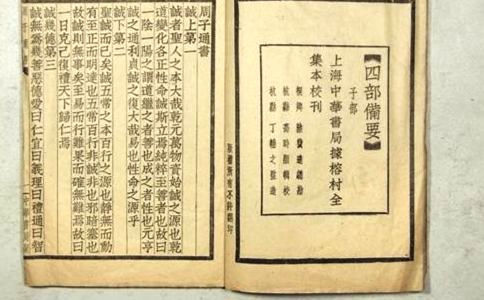 四部備要
子部
上海中華書局據榕村全
集本校刊
桐鄉 陸費逵總勘
杭縣 高時顯輯校
杭縣 丁輔之監造
版權所有不許翻印
周子通書
誠上第一
誠者聖人之本大哉乾元萬物資始誠之源也乾
道變化各正性命誠斯立焉純粹至善者也故曰
一陰一陽之謂道繼之者善也成之者性也元亨
誠之通利貞誠之復大哉易也性命之源乎
誠下第二
聖誠而已矣誠五常之本百行之源也靜無而動
有至正而明達也五常百行非誠非也邪暗塞也
故誠則無事矣至易而行難果而確無難焉故曰
一日克己復禮天下歸仁焉
誠幾德第三
誠無爲幾善惡德愛曰仁宜曰義理曰禮通曰智